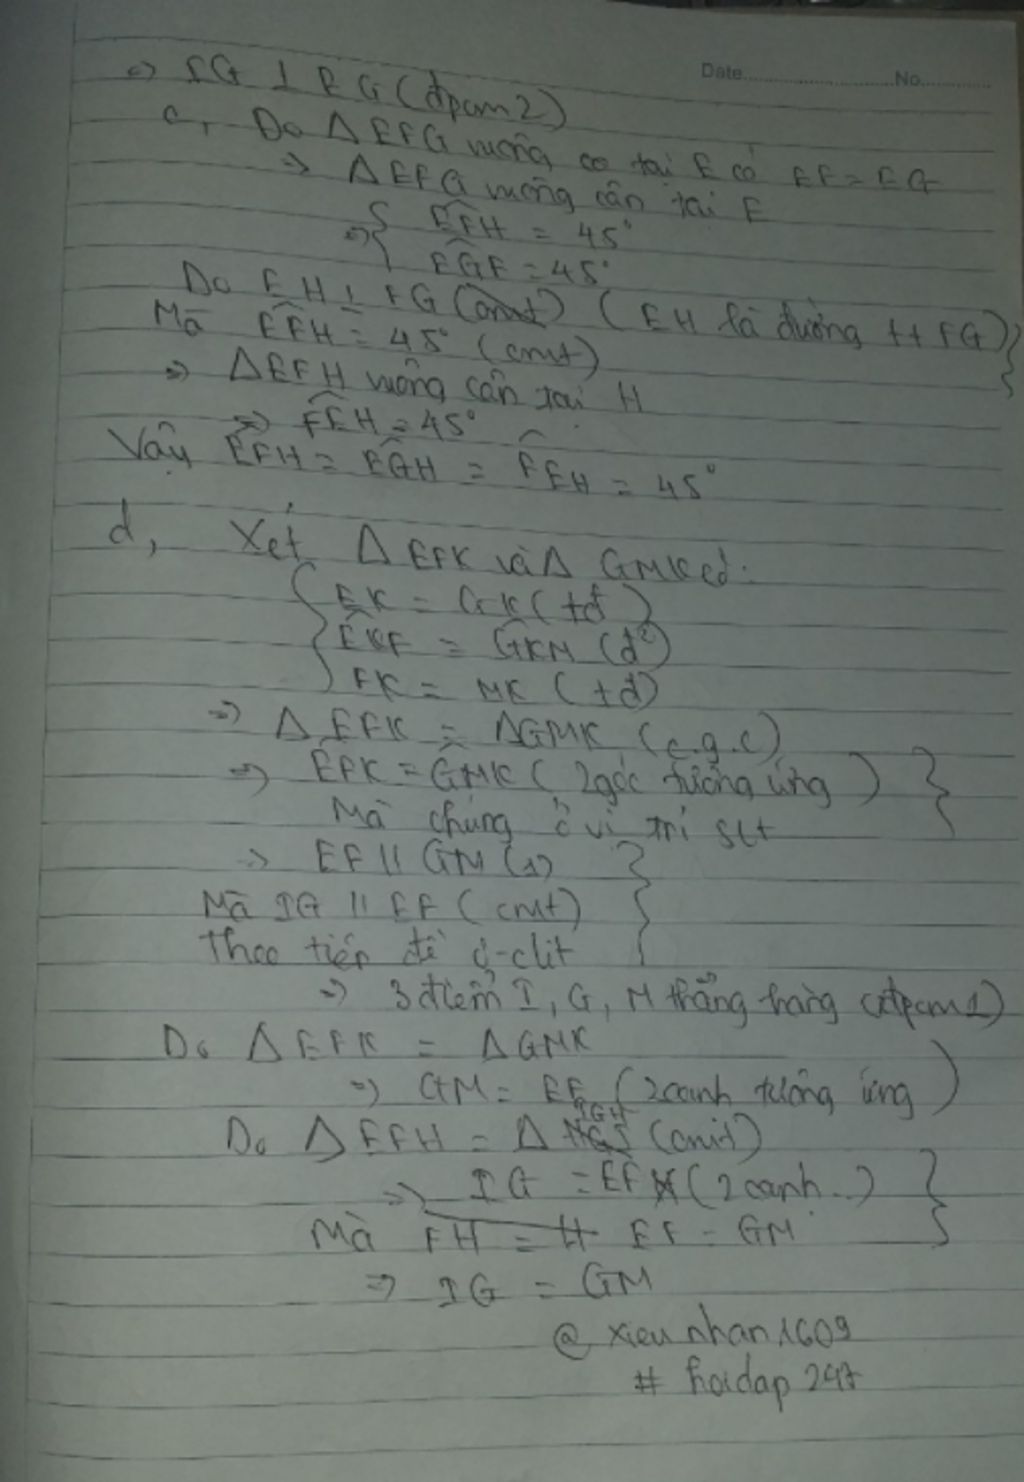 Date............No.........
=> IG ⊥ EG (đpcm 2)
c, Do Δ EFG vuông co tại E có EF = EG
=> Δ EFG vuông cân tại E
=> { EFH = 45°
EGF = 45°
Do EH ⊥ FG (cmt) (EH là đường tt FG)
Mà EFH = 45° (cmt)
=> Δ EFH vuông cân tại H
=> FEH = 45°
Vậy EFH = EGH = FEH = 45°
d, Xét Δ EFK và Δ GMK có:
EK = GK (tđ)
EKF = GKM (đ²)
FK = MK (tđ)
=> Δ EFK = ΔGMK (c.g.c)
=> EFK = GMK (2 góc tương ứng)
Mà chúng ở vị trí slt
=> EF // GM (1)
Mà IG // EF (cmt)
Theo tiên đề ơ-clit
=> 3 điểm I, G, M thẳng hàng (đpcm 1)
Do Δ EFK = Δ GMK
=> GM = EF (2 cạnh tương ứng)
Do Δ EFH = Δ IGH (cmt)
=> IG = EF (2 cạnh..)
Mà FH = H EF = GM
=> IG = GM
@ xieu nhan 1609
# hoidap 247